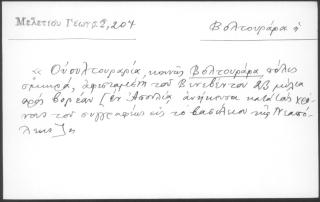 Μελετίου Γεωγρ. 2, 204
Βολτουράρα ἡ
« Οὐουλτουραρία, κοινῶς Βολτουράρα, πόλις
σμικρά, ἀφισταμένη τοῦ Βενεβέντου 23 μίλια
πρὸς βορέαν [ἐν Ἀπουλίᾳ ἀνήκουσα κατὰ τοὺς χρό-
νους τοῦ συγγραφέως εἰς τὸ βασίλειον τῆς Νεαπό-
λεως